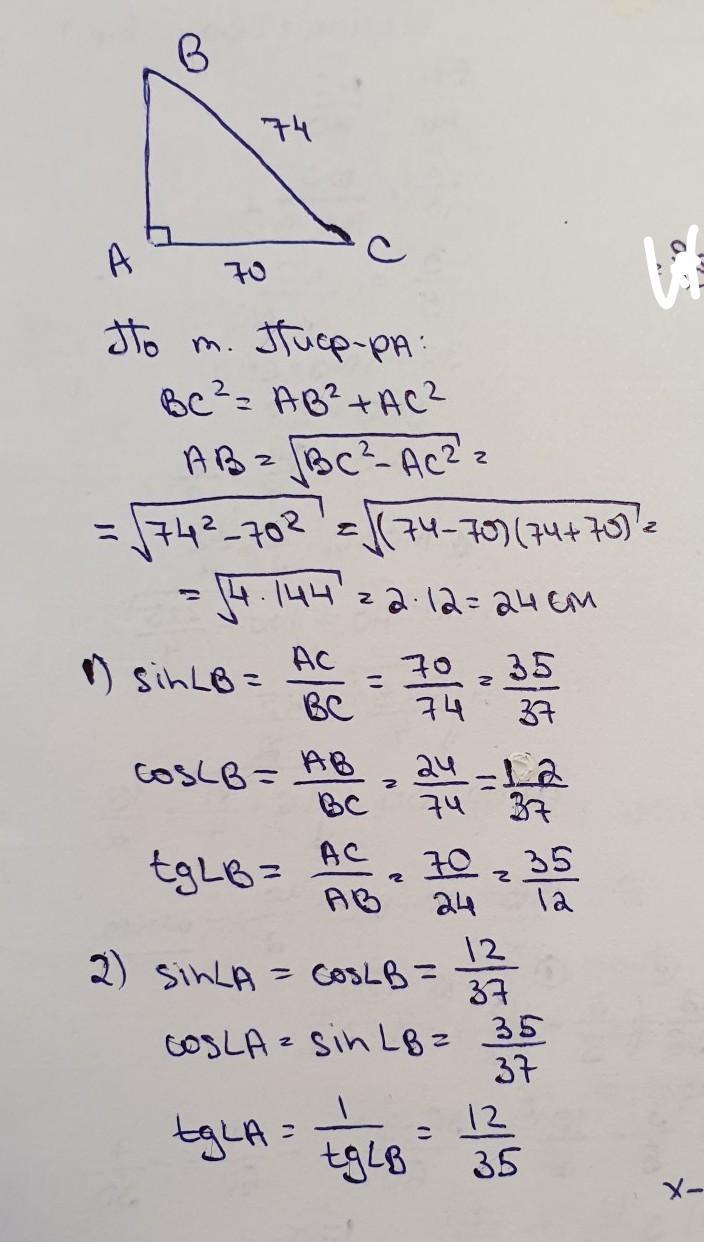 B
74
A
C
70
По т. Пиф-ра:
BC² = AB² + AC²
AB = √(BC² - AC²) =
= √(74² - 70²) = √((74-70)(74+70)) =
= √(4 · 144) = 2 · 12 = 24 см
1) sin∠B = AC/BC = 70/74 = 35/37
cos∠B = AB/BC = 24/74 = 12/37
tg∠B = AC/AB = 70/24 = 35/12
2) sin∠A = cos∠B = 12/37
cos∠A = sin∠B = 35/37
tg∠A = 1/tg∠B = 12/35
x-